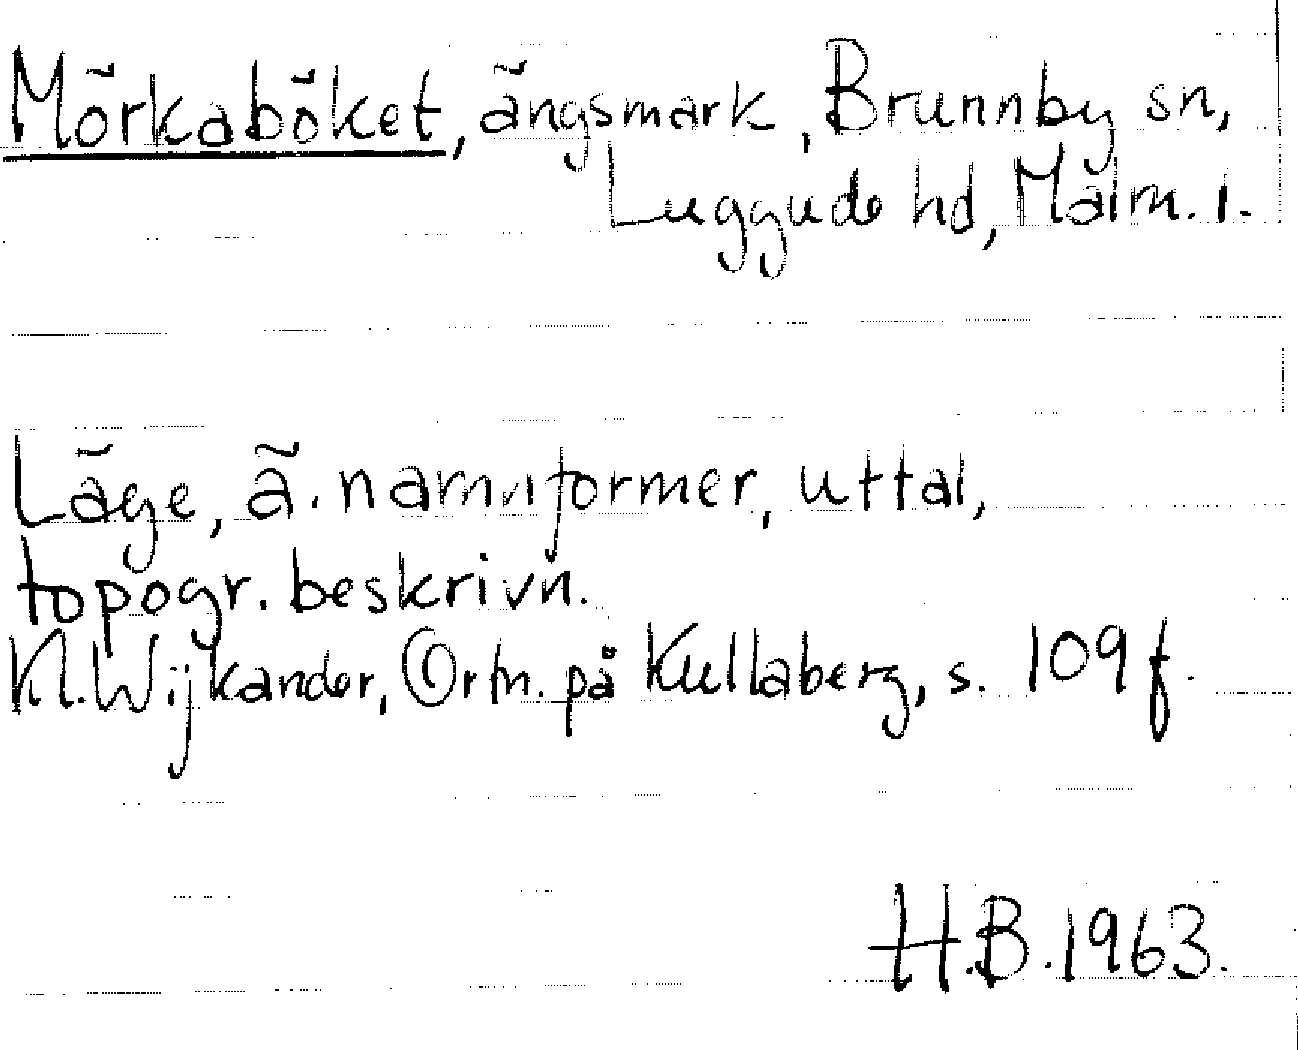 Mörkaböket, ängsmark, Brunnby sn,
Luggude hd, Malm. l.
Läge, ä. namnformer, uttal,
topogr. beskrivn.
K. Wijkander, Ortn. på Kullaberg, s. 109 f.
H.B. 1963.